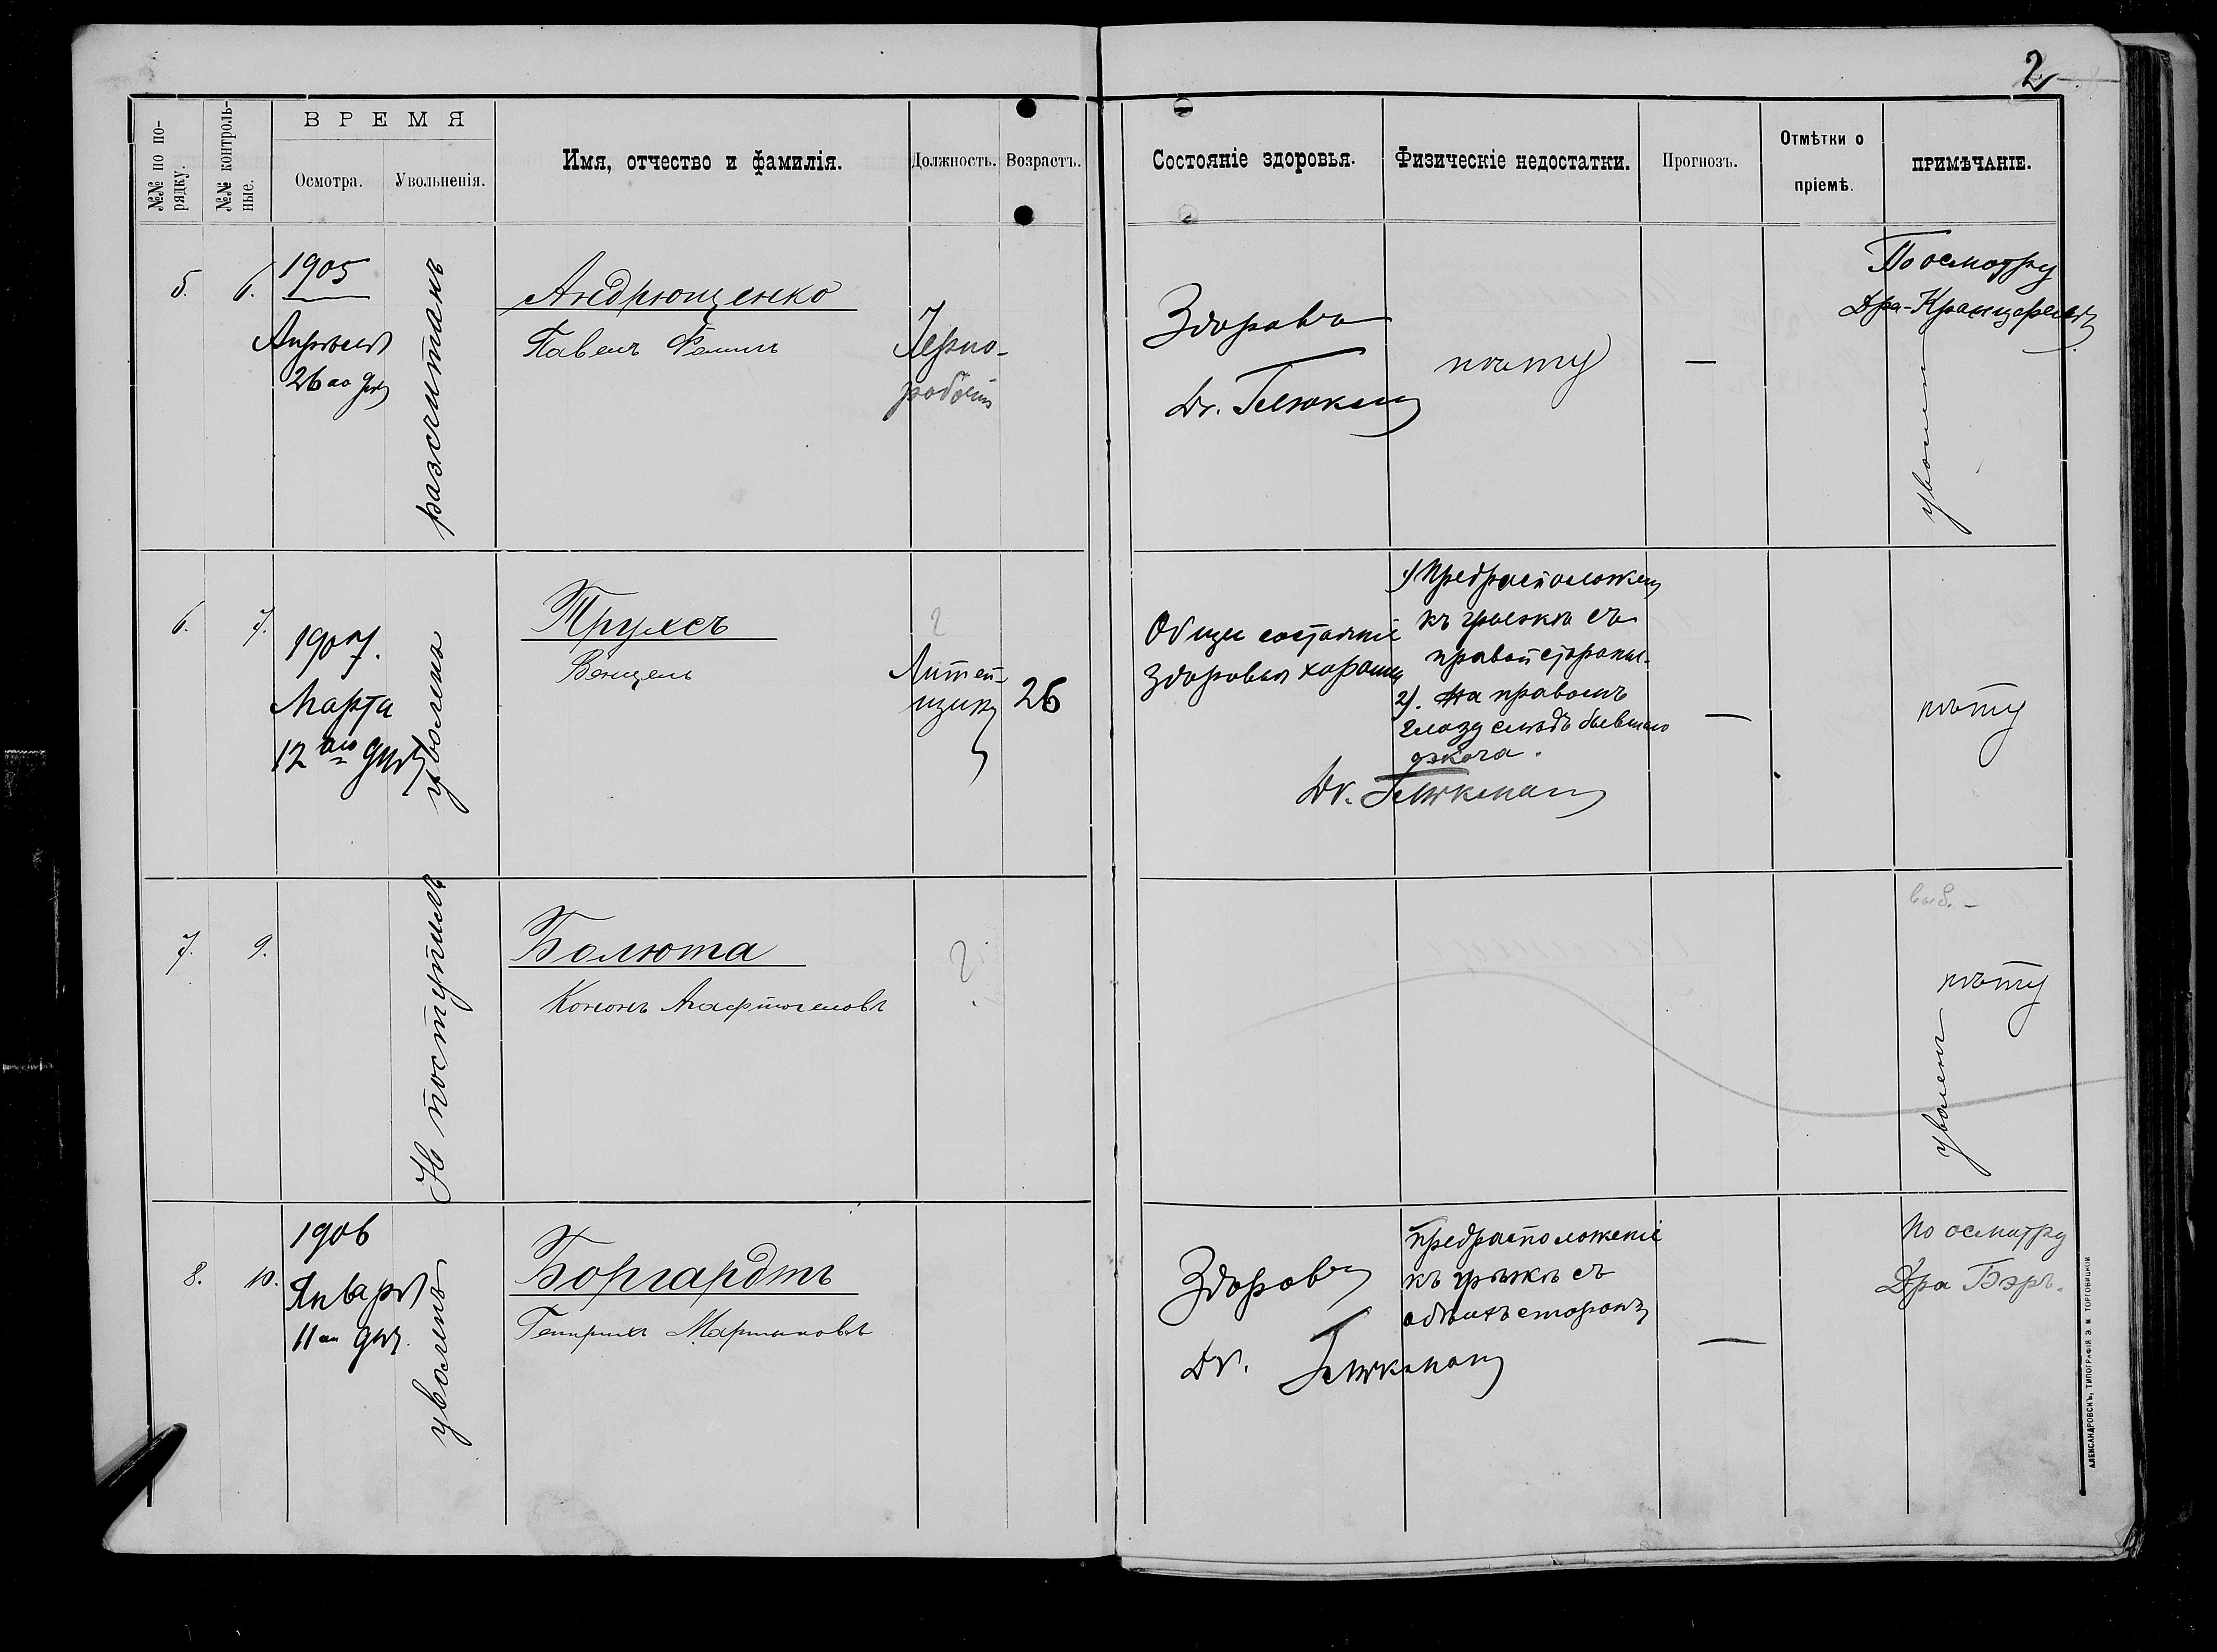 2
№№ по по-
рядку.
№№ контроль-
ные.
ВРЕМЯ
Осмотра.
Увольненія.
Имя, отчество и фамилія.
Должность.
Возрастъ.
Состояніе здоровья.
Физическіе недостатки.
Прогнозъ.
Отмѣтки о
пріемѣ.
ПРИМѢЧАНІЕ.
5.
6.
1905
Апрѣля
26го дня
разсчитанъ
Андрющенко
Павелъ Фоминъ
Черно-
рабочій
Здоровъ
Dr.
нѣту
—
По осмотру
Д-ра
уволенъ
6.
7.
1907.
Марта
12го дня
уволенъ
Трулсъ
Венцель
?
Литей-
щикъ
26
Общее состояніе
здоровья хорошее
1) Предрасположеніе
къ грыжѣ съ
правой стороны.
2). На правомъ
глазу слѣдъ бывшаго
ожога.
Dr. Гликманъ
—
нѣту
7.
9.
Не поступилъ
Болюта
Кононъ Агафтогеновъ
?
выб. —
нѣту
уволенъ
8.
10.
1906
Января
11го дня.
уволенъ
Боргардтъ
Генрихъ Мартиновъ
Здоровъ
Предрасположеніе
къ грыжѣ съ
обѣихъ сторонъ
Dr. Гликманъ
—
По осмотру
Д-ра Бэръ.
АЛЕКСАНДРОВСКЪ, ТИПОГРАФІЯ Э. М. ТОРГОВИЦКОЙ